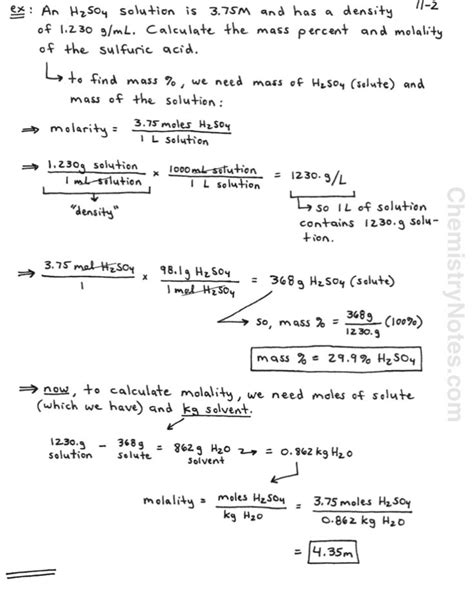 11-2
ex: An H₂SO₄ solution is 3.75M and has a density
of 1.230 g/mL. Calculate the mass percent and molality
of the sulfuric acid.
↳ to find mass %, we need mass of H₂SO₄ (solute) and
mass of the solution:
⇒ molarity = 3.75 moles H₂SO₄ / 1 L solution
⇒ 1.230g solution / 1 mL solution × 1000mL solution / 1 L solution = 1230. g/L
"density"
↳ so 1L of solution
contains 1230.g solu-
tion.
⇒ 3.75 mol H₂SO₄ / 1 × 98.1g H₂SO₄ / 1 mol H₂SO₄ = 368g H₂SO₄ (solute)
→ so, mass % = 368g / 1230.g (100%)
mass % = 29.9% H₂SO₄
⇒ now, to calculate molality, we need moles of solute
(which we have) and kg solvent.
1230.g solution - 368g solute = 862g H₂O solvent → = 0.862 kg H₂O
molality = moles H₂SO₄ / kg H₂O = 3.75 moles H₂SO₄ / 0.862 kg H₂O
= 4.35m
ChemistryNotes.com